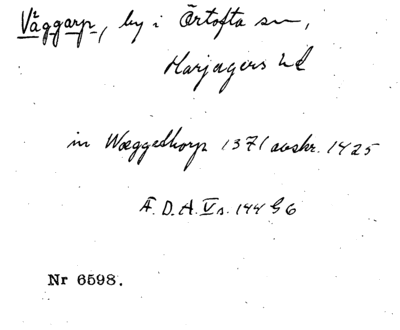 Väggarp, by i Örtofta sn,
Harjagers hd
in Wæggethorp 1371 avskr. 1425
Ä. D. A. V s. 144 G 6
Nr 6598.